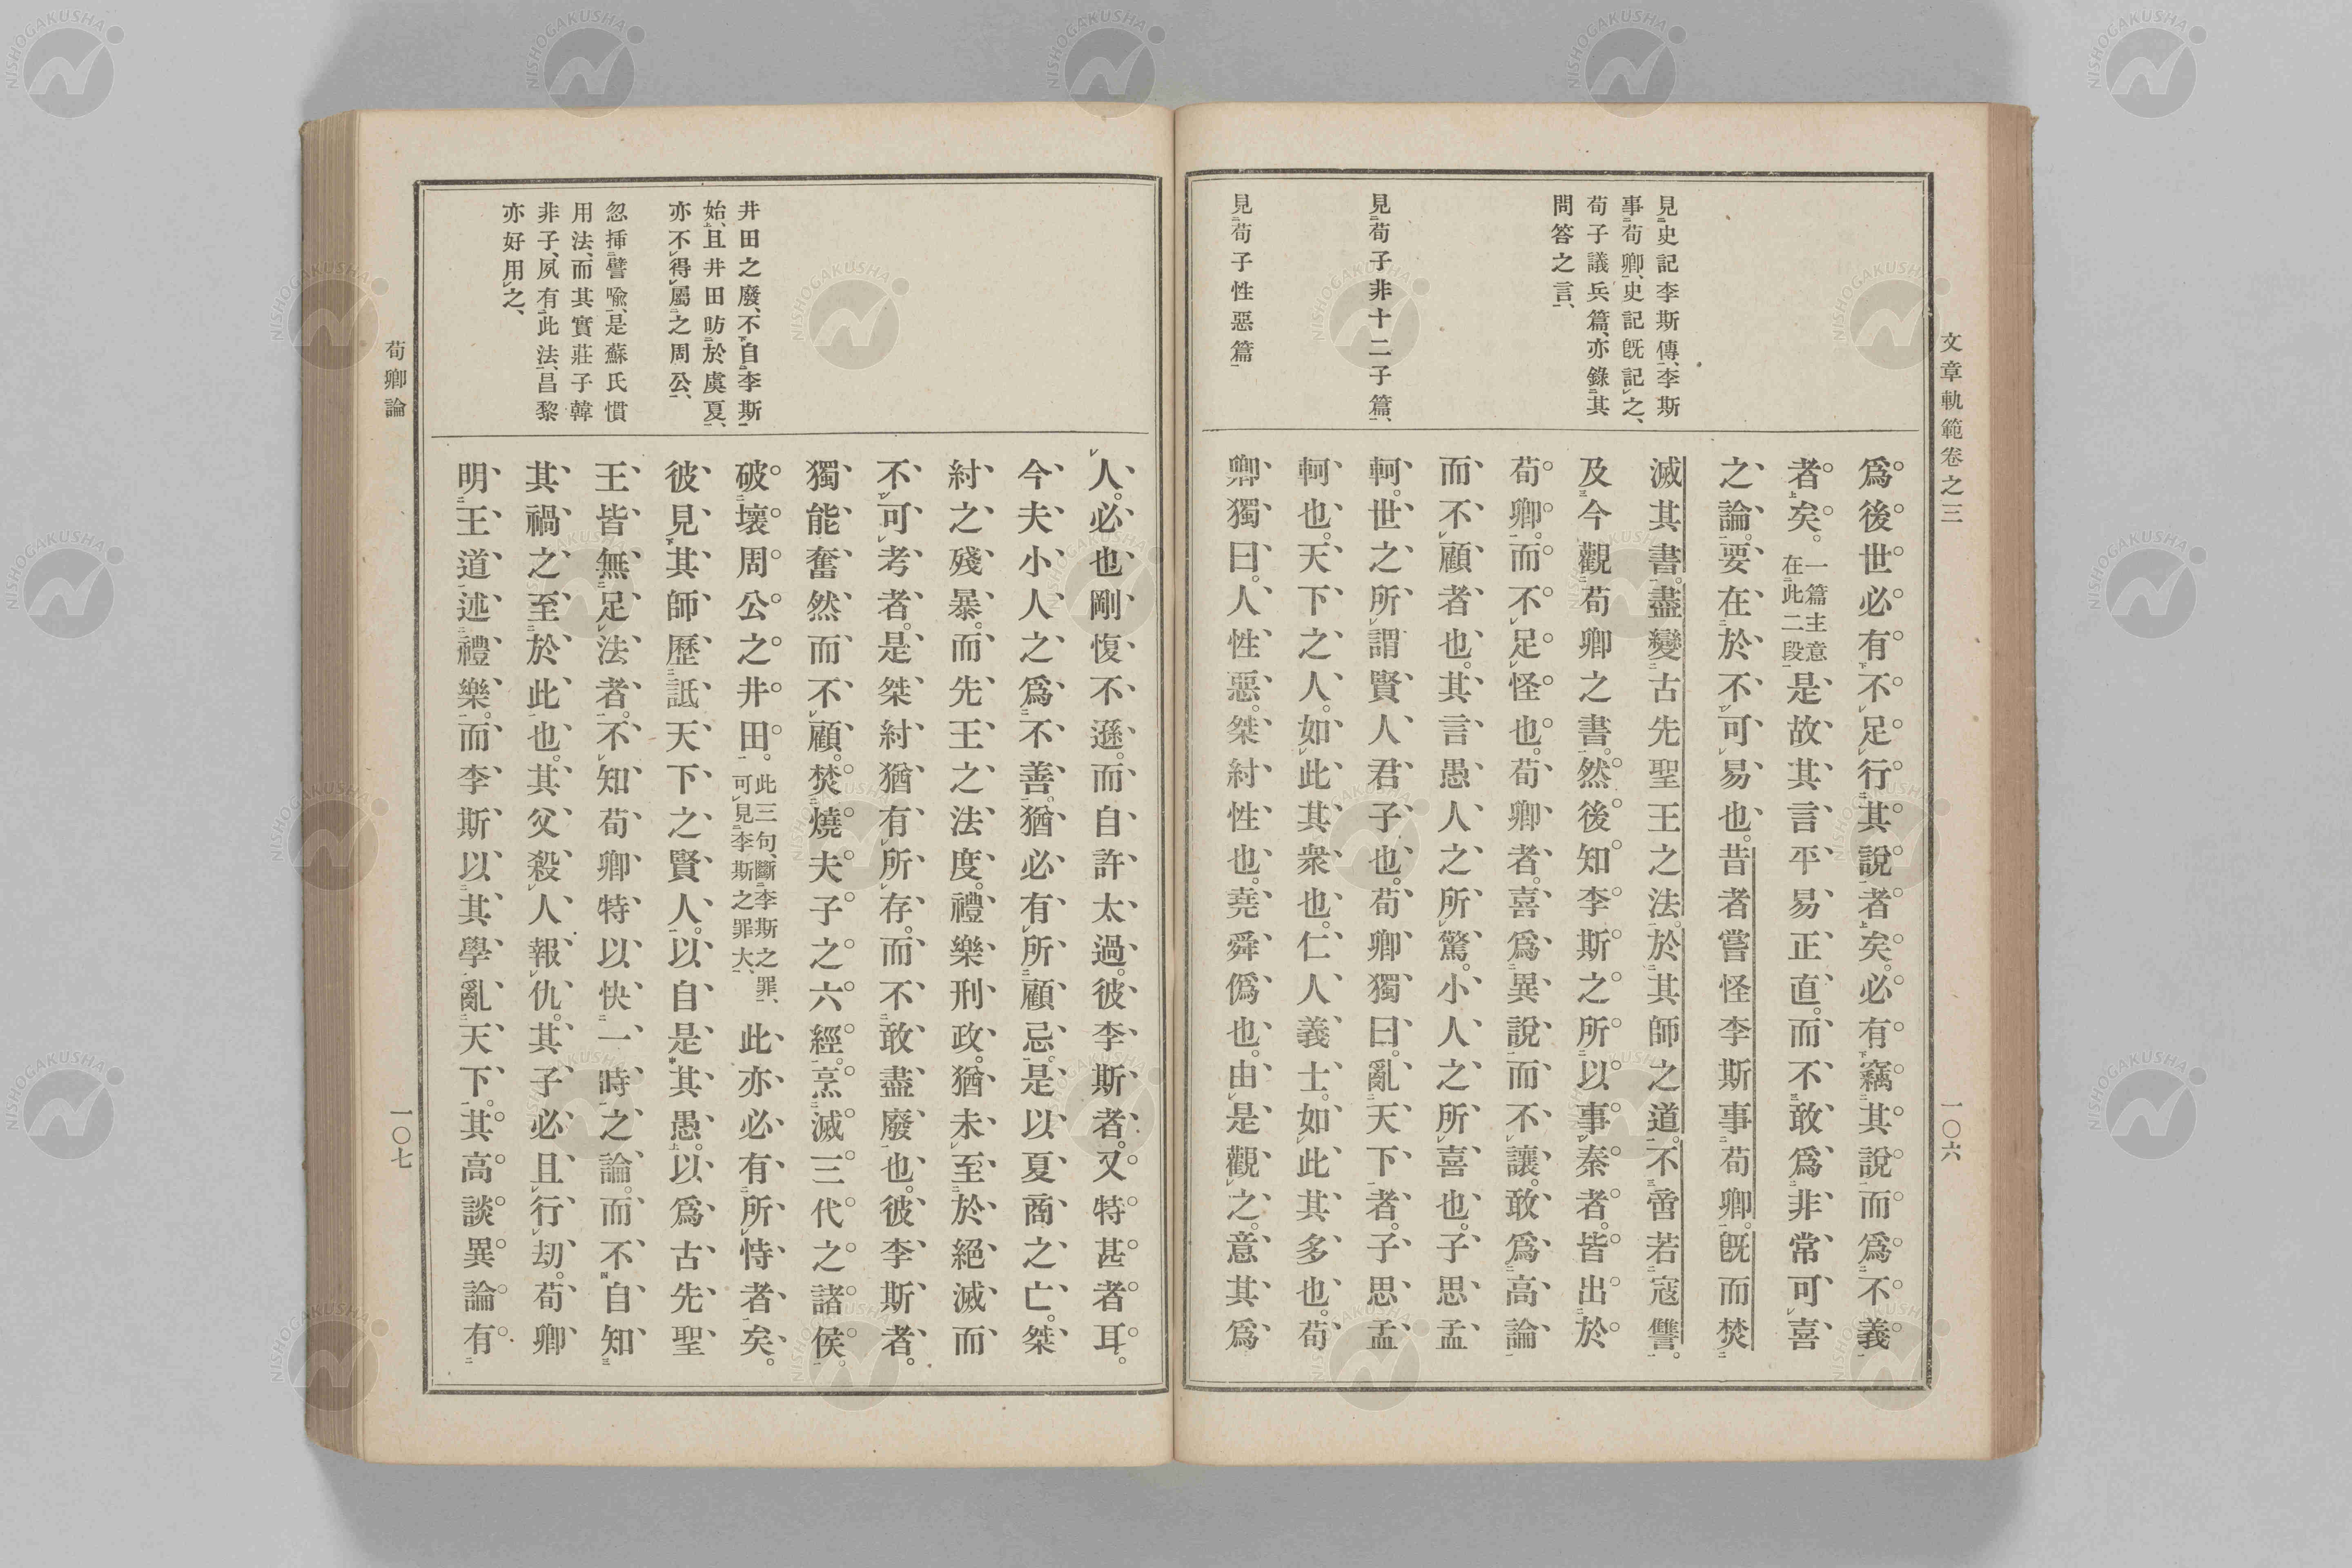 文章軌範卷之三
一〇六
見史記李斯傳、李斯
事荀卿、史記既記之、
荀子議兵篇、亦錄其
問答之言、
見荀子非十二子篇、
見荀子性惡篇
爲後世必有不足行其說者矣。必有竊其說而爲不義
者矣。一篇主意在此二段是故其言平易正直。而不敢爲非常可喜
之論。要在於不可易也。昔者嘗怪李斯事荀卿。既而焚
滅其書。盡變古先聖王之法。於其師之道。不啻若寇讐。
及今觀荀卿之書。然後知李斯之所以事秦者。皆出於
荀卿。而不足怪也。荀卿者。喜爲異說而不讓。敢爲高論
而不顧者也。其言愚人之所驚。小人之所喜也。子思孟
軻。世之所謂賢人君子也。荀卿獨曰。亂天下者。子思孟
軻也。天下之人。如此其衆也。仁人義士。如此其多也。荀
卿獨曰。人性惡。桀紂性也。堯舜僞也。由是觀之。意其爲
井田之廢、不自李斯
始、且井田昉於虞夏、
亦不得屬之周公、
忽挿譬喩、是蘇氏慣
用法、而其實莊子韓
非子、夙有此法、昌黎
亦好用之、
人。必也剛愎不遜。而自許太過。彼李斯者。又特甚者耳。
今夫小人之爲不善。猶必有所顧忌。是以夏商之亡。桀
紂之殘暴。而先王之法度。禮樂刑政。猶未至於絕滅而
不可考者。是桀紂猶有所存。而不敢盡廢也。彼李斯者。
獨能奮然而不顧。焚燒夫子之六經。烹滅三代之諸侯。
破壞周公之井田。此三句、斷李斯之罪、可見李斯之罪大、此亦必有所恃者矣。
彼見其師歷詆天下之賢人。以自是其愚。以爲古先聖
王皆無足法者。不知荀卿特以快一時之論。而不自知
其禍之至於此也。其父殺人報仇。其子必且行劫。荀卿
明王道述禮樂。而李斯以其學亂天下。其高談異論有
荀卿論
一〇七
NISHOGAKUSHA